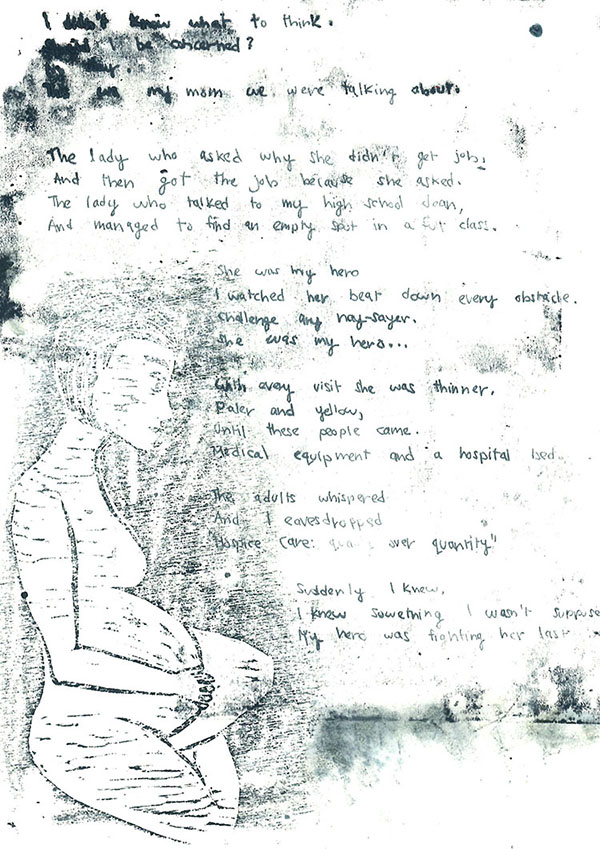 I didn't know what to think.
Should I be concerned?
my mom we were talking about.
The lady who asked why she didn't get job,
And then got the job because she asked.
The lady who talked to my high school dean,
And managed to find an empty spot in a full class.
She was my hero
I watched her beat down every obstacle.
Challenge any nay-sayer.
She was my hero...
With every visit she was thinner,
Paler and yellow,
Until these people came.
Medical equipment and a hospital bed.
The adults whispered
And I eavesdropped
"Hospice Care: quality over quantity"
Suddenly I knew,
I knew something I wasn't suppose
My hero was fighting her last